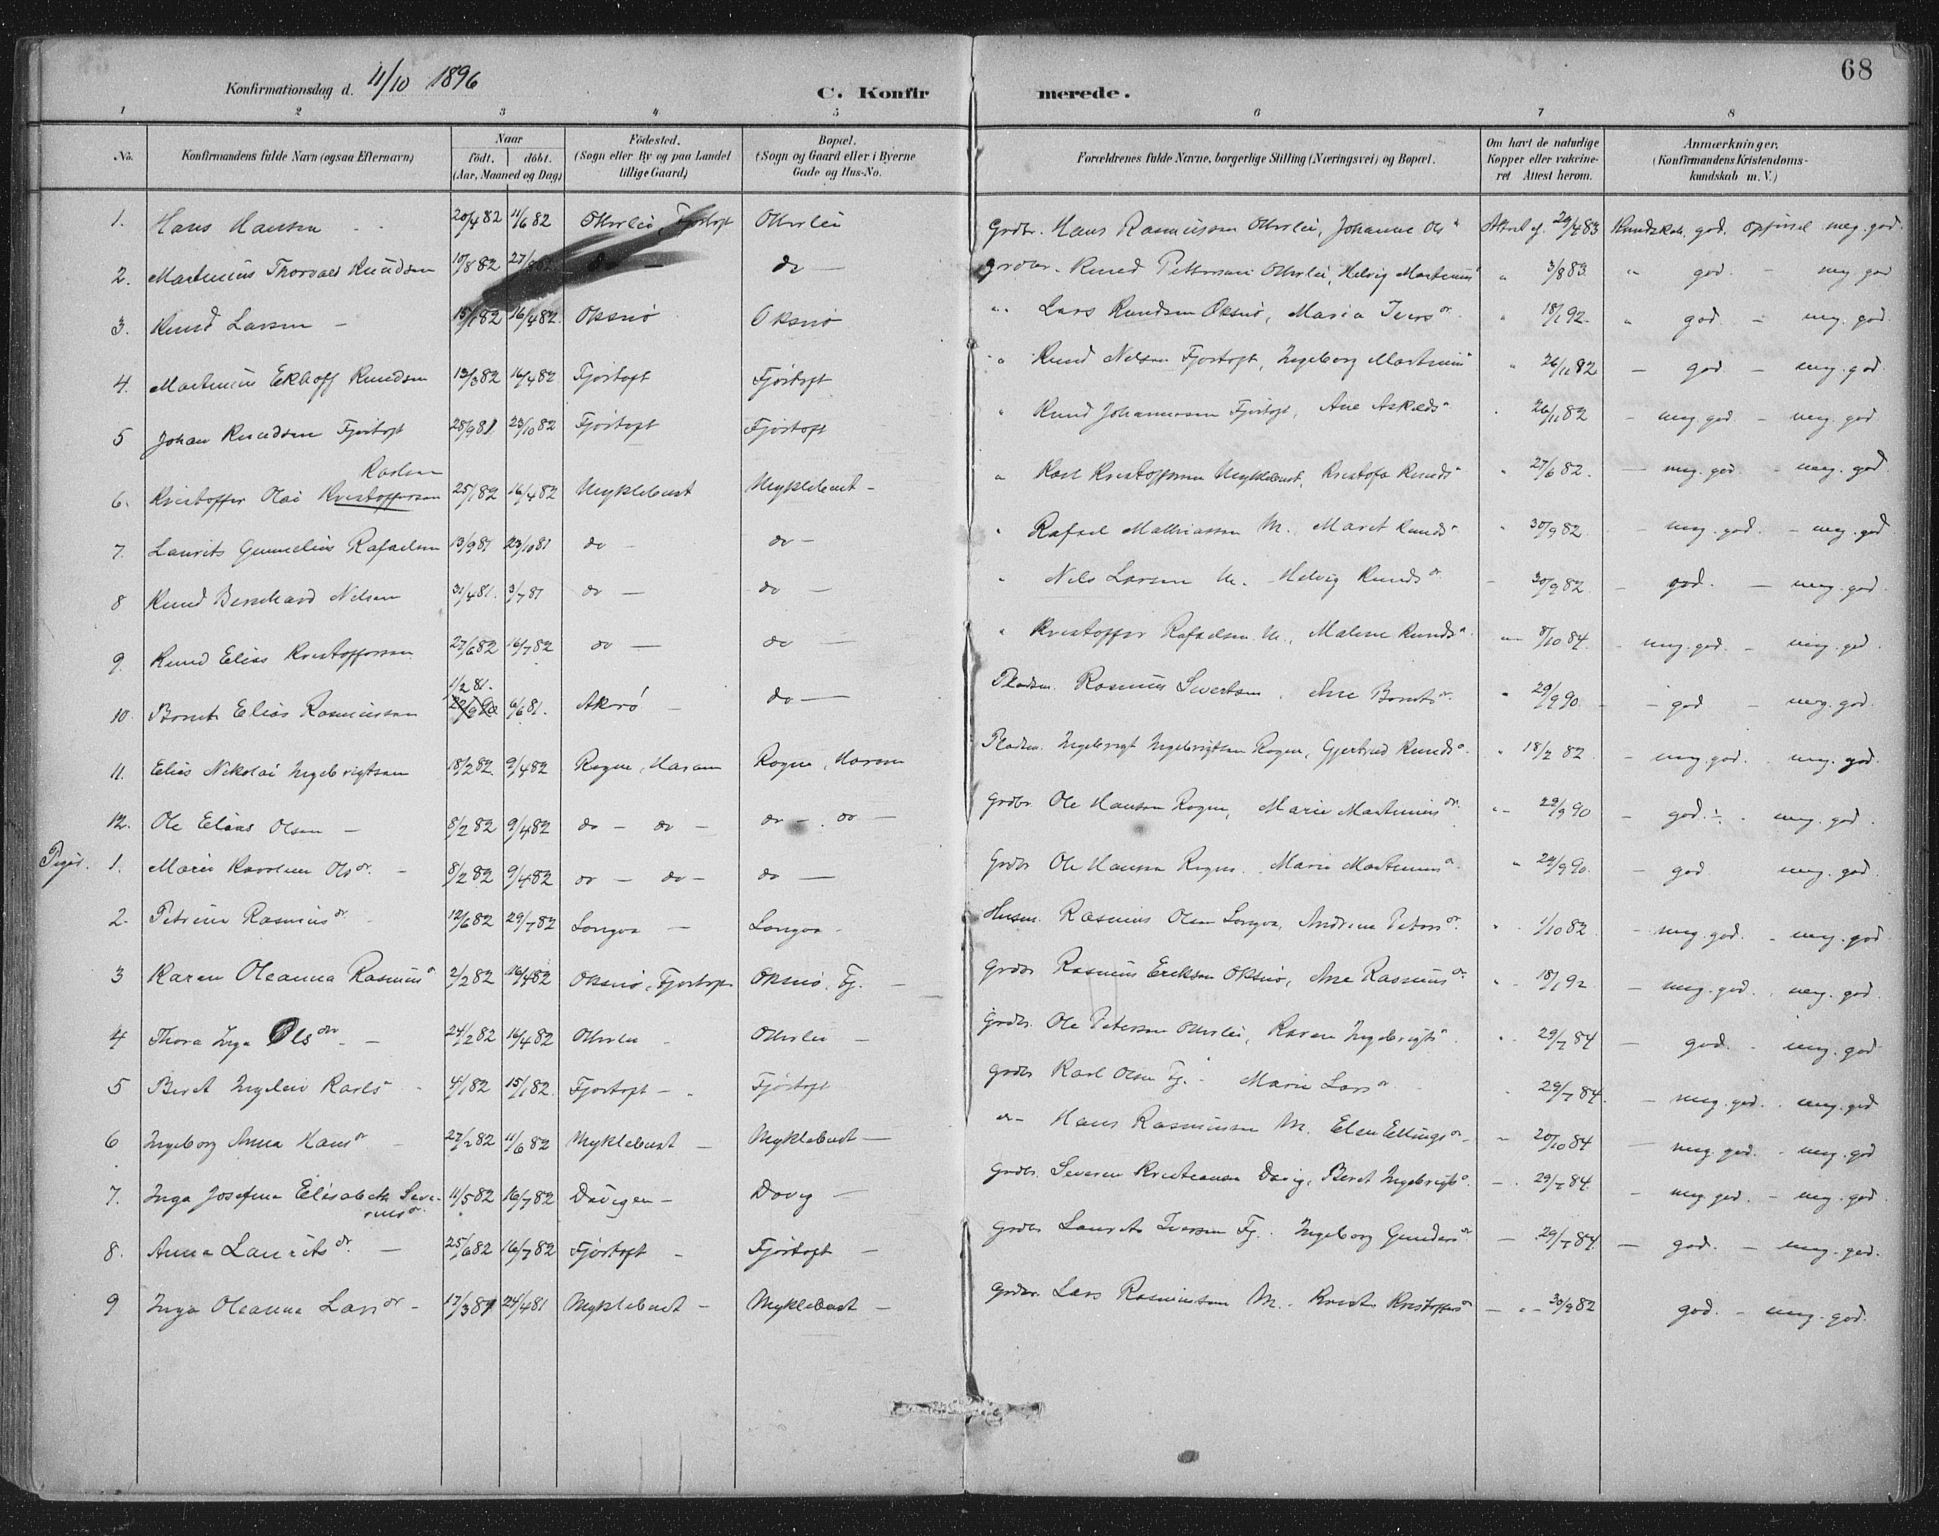 68
Konfirmationsdag d. 11/10 1896
C. Konfirmerede.
1 2 3 4 5 6 7 8
No. Konfirmandens fulde Navn (ogsaa Efternavn) Naar født. døbt. (Aar, Maaned og Dag) Fødested. (Sogn eller By og paa Landet tillige Gaard) Bopæl. (Sogn og Gaard eller i Byerne Gade og Hus-No. Forældrenes fulde Navne, borgerlige Stilling (Næringsvei) og Bopæl. Om havt de naturlige Kopper eller vakcineret Attest herom. Anmærkninger. (Konfirmandens Kristendomskundskab m. V.)
1. Hans Hansen 20/4 82 11/6 82 Otterlei, Fjørtoft Otterlei Grdbr. Hans Rasmussen Otterlei, Johanne Ols" Attest af 29/4 83 Kundskab. god. opførsel meg. god.
2. Martinius Thorvald Knudsen 10/8 82 27/8 82 do — do — Grdbr. Knud Pettersen Otterlei, Helvig Martinius" " 3/8 83 " god — meg god
3. Knud Larsen — 15/1 82 16/4 82 Oksnø Oksnø " Lars Knudsen Oksnø, Maria Ivers dr. " 18/1 92. " god — meg. god.
4. Martinius Ekhoff Knudsen 13/3 82 16/4 82 Fjørtoft Fjørtoft " Knud Nelsen Fjørtoft, Ingeborg Martinius" " 26/11 82 — god — meg. god
5 Johan Knudsen Fjørtoft 28/9 81. 23/10 82 Fjørtoft Fjørtoft " Knud Johannesen Fjørtoft, Ane Askilds" " 26/11 82 — meg. god. — meg. god
Karlsen
6. Kristoffer Olai Kristoffersen 25/1 82 16/4 82 Myklebust Myklebust — " Karl Kristoffersen Myklebust, Kristofa Knuds" 27/6 82. — meg. god — meg. god
7. Laurits Gunnelius Rafaelsen 13/9 81 23/10 81 do — do — " Rafael Mathiassen M. Maret Knuds" " 30/9 82 — meg. god. — meg. god
8 Knud Bernhard Nilsen 31/4 81. 3/7 81 do — do — " Nils Larsen M. Helvig Knuds dr — 30/9 82. — god. — meg. god
9. Knud Elias Kristoffersen 27/6 82 16/7 82 do — do — " Kristoffer Rafaelsen M., Malene Knuds" 8/10 84. — meg. god. — meg. god.
1/2 81.
10. Bernt Elias Rasmussen 6/6 81. Akerø — do — Pladsm. Rasmus Sivertsen, Ane Bernts dr. " 29/9 90. — god — meg. god.
11. Elias Nikolai Ingebrigtsen 18/2 82. 9/4 82 Rogne, Haram Rogne, Haram Pladsm. Ingebrigt Ingebrigtsen Rogne, Gjertrud Knuds". " 18/2 82 — meg. god. meg. god.
12. Ole Elias Olsen — 8/2 82 9/4 82 do — do — do — do — Grdbr Ole Hansen Rogne, Marie Martinius dr. " 29/9 90 — god. ÷. meg. god.
Piger. 1. Marie Karoline Ols dr. — 8/2 82 9/4 82 do — do — do — Grdbr Ole Hansen Rogne. Marie Martinius". " 29/9 90. — god meg. god.
2. Petrine Rasmus dr. 12/6 82 29/7 82 Longva — Longva — Husm. Rasmus Olsen Longva, Andrine Peters dr. " 1/10 82 — meg. god. — meg. god.
3 Karen Oleanna Rasmus" 2/2 82 16/4 82 Oksnø, Fjørtoft Oksnø. Fj. — Grdbr Rasmus Eriksen Oksnø, Ane Rasmus dr. " 18/1 92 — meg. god. meg. god.
4 Thora Inga Ols dtr — 24/2 82 16/4 82 Otterlei Otterlei — Grdbr. Ole Petersen Otterlei, Karen Ingebrigts". " 29/7 84 — god. — meg. god
5 Beret Ingeleiv Karls" 4/1 82 15/1 82. Fjørtoft — Fjørtoft Grdbr Karl Olsen Fj. — Marie Lars dr 29/7 84. — meg. god. meg. god
6 Ingeborg Anna Hans dr 27/2 82 11/6 82 Myklebust — Myklebust — " Hans Rasmussen M. Elen Ellings dr. " 20/10 84 — meg. god. — meg. god
7. Inga Josefina Elisabeth Seve-
rins dr. 11/5 82 16/7 82 Davigen — Davig — Grdbr. Severin Kristiansen Davig, Beret Ingebrigts dr. — 29/7 84. — meg god. — meg. god.
8. Anna Laurits dr. — 25/6 82 16/7 82 Fjørtoft — Fjørtoft — Grdbr Laurits Iversen Fj. Ingeborg Gunders dr — 29/7 84. — god. — meg. god.
9 Inga Oleanna Lars dr — 17/3 81 24/4 81 Myklebust — Myklebust — Grdbr. Lars Rasmussen M. Kristoffers" — " 30/9 82 god. — meg. god.